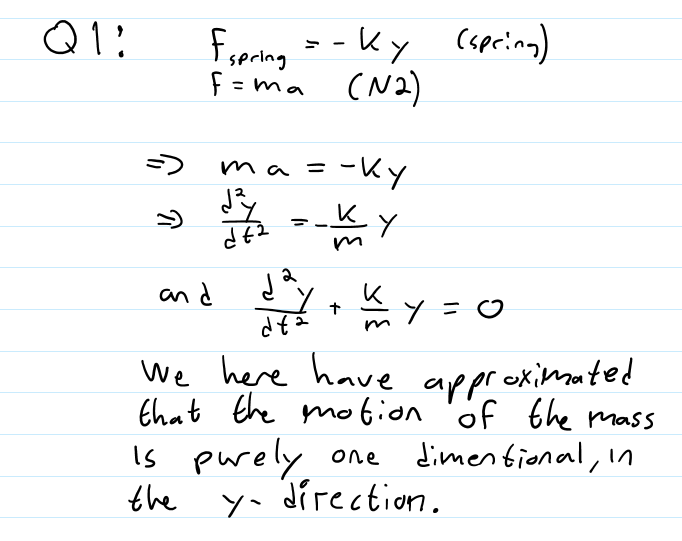 Q1: F_spring = - K y (spring)
F = ma (N2)
=> ma = -Ky
=> d²y/dt² = - K/m y
and d²y/dt² + K/m y = 0
We here have approximated
that the motion of the mass
is purely one dimentional, in
the y-direction.